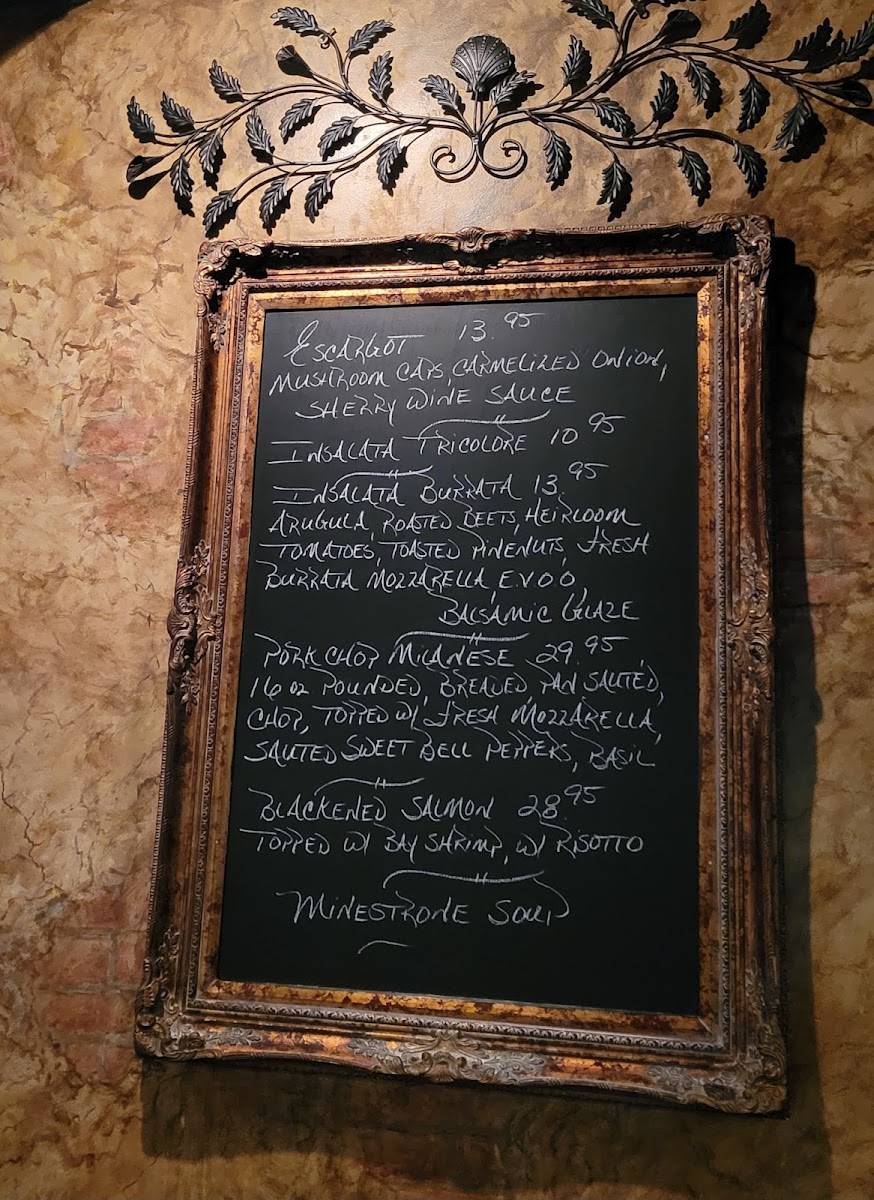 ESCARGOT 13.95
MUSHROOM CAPS, CARMELIZED ONION,
SHERRY WINE SAUCE
INSALATA TRICOLORE 10 95
INSALATA BURRATA 13.95
ARUGULA, ROASTED BEETS, HEIRLOOM
TOMATOES, TOASTED PINENUTS, FRESH
BURRATA MOZZARELLA, E.V.O.O,
BALSAMIC GLAZE
PORK CHOP MILANESE 29.95
16 oz POUNDED, BREADED, PAN SAUTÉD,
CHOP, TOPPED W/ FRESH MOZZARELLA,
SAUTED SWEET BELL PEPPERS, BASIL
BLACKENED SALMON 28.95
TOPPED W/ BAY SHRIMP, W/ RISOTTO
MINESTRONE SOUP